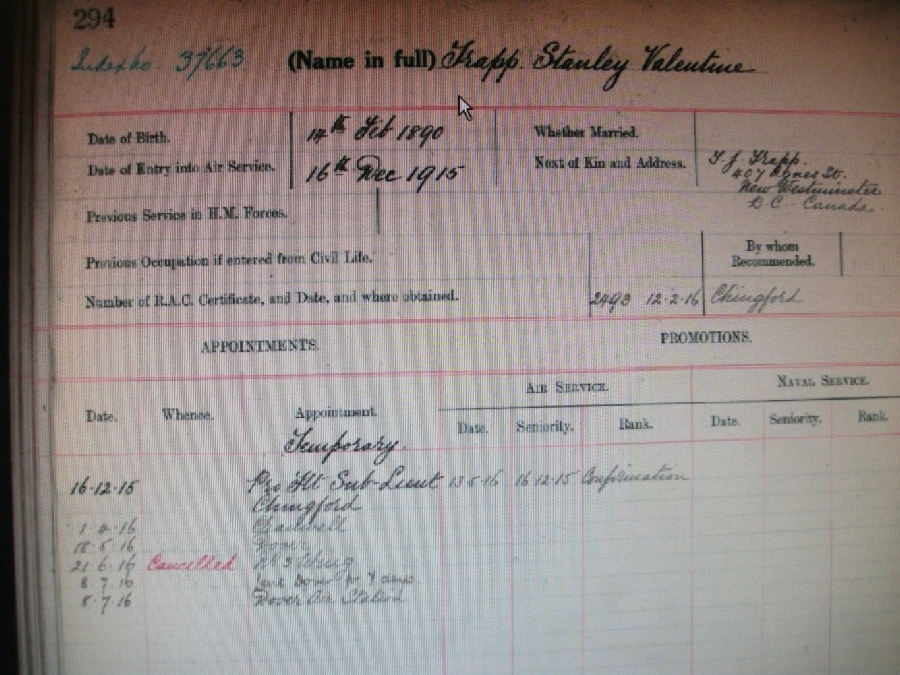 294
Index No 37663 (Name in full) Trapp. Stanley Valentine
Date of Birth. 14th Feb 1890 Whether Married.
Date of Entry into Air Service. 16th Dec 1915 Next of Kin and Address. T. J. Trapp.
407 Agnes St.
New Westminster
B.C. Canada.
Previous Service in H.M. Forces.
Previous Occupation if entered from Civil Life. By whom Recommended.
Number of R.A.C. Certificate, and Date, and where obtained. 2493 12-2-16 Chingford
APPOINTMENTS. PROMOTIONS.
AIR SERVICE. NAVAL SERVICE.
Date. Whence. Appointment. Date. Seniority. Rank. Date. Seniority. Rank.
Temporary.
16-12-15 Pro Flt Sub Lieut 13-5-16 16 12-15 Confirmation
Chingford
1-4-16 Cranwell
18-5-16 Dover
21-6-16 Cancelled No 3 Wing
8-7-16 Lent Dover for 4 days
8-7-16 Dover Air Station